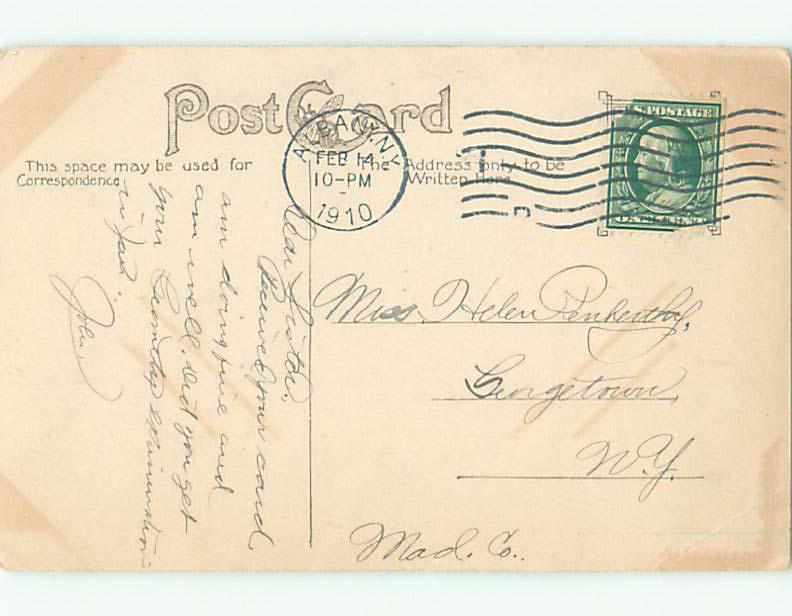 Post Card
This space may be used for
Correspondence
The Address only to be
Written Here
ALBANY, N.Y.
FEB 14
10-PM
1910
U.S. POSTAGE
Dear Sister,
Received your card
am doing fine and
am well. did you get
your examination
in Jan.
John.
Miss. Helen Penberthy,
Georgetown,
N.Y.
Mad. Co..